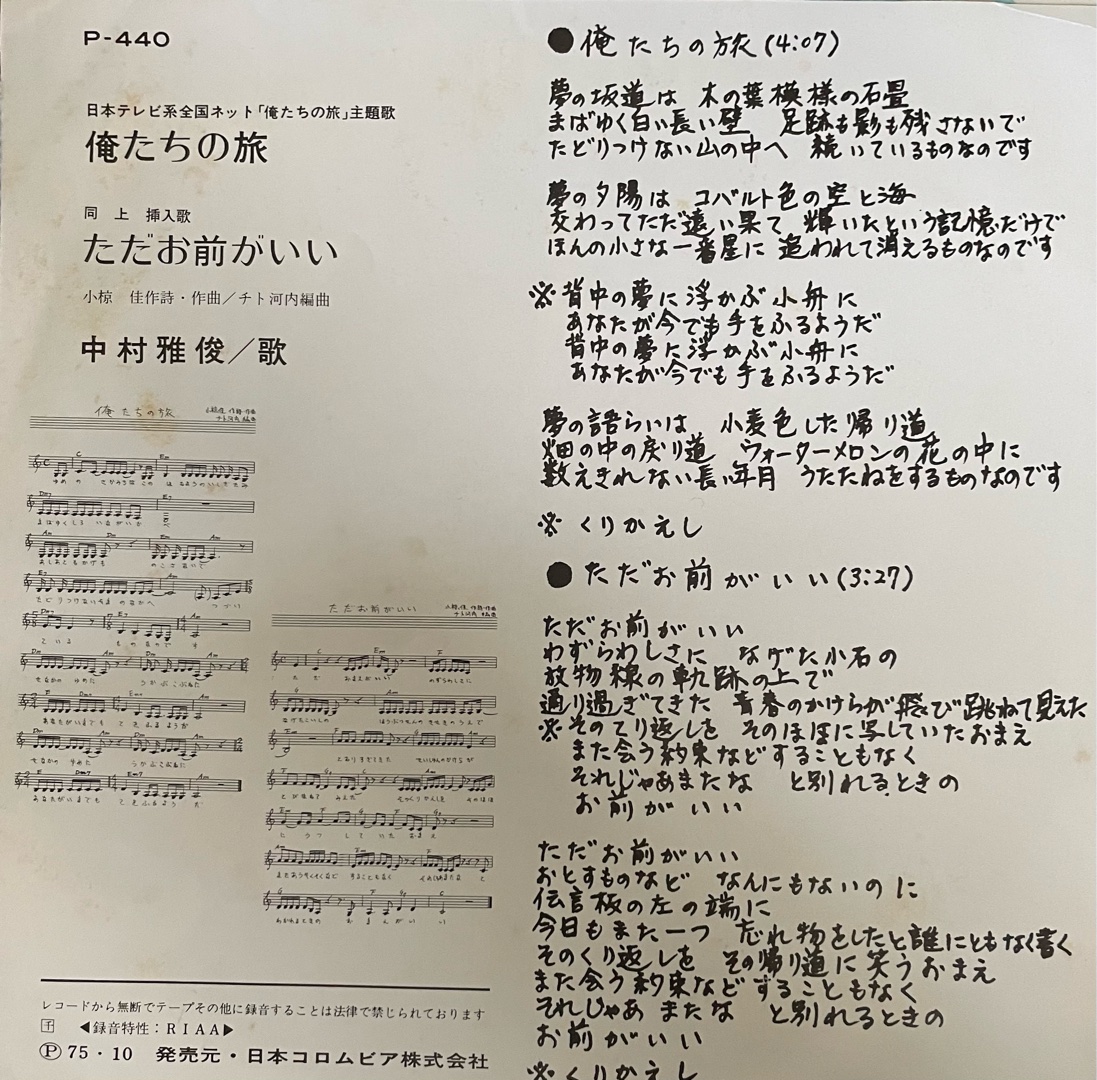 P-440
日本テレビ系全国ネット「俺たちの旅」主題歌
俺たちの旅
同 上 挿入歌
ただお前がいい
小椋 佳作詩・作曲／チト河内編曲
中村雅俊／歌
俺たちの旅
ただお前がいい
レコードから無断でテープその他に録音することは法律で禁じられております
◀録音特性：RIAA▶
Ⓟ75・10 発売元・日本コロムビア株式会社
●俺たちの旅(4:07)
夢の坂道は 木の葉模様の石畳
まばゆく白い長い壁 足跡も影も残さないで
たどりつけない山の中へ 続いているものなのです
夢の夕陽は コバルト色の空と海
交わってただ遠い果て 輝いたという記憶だけで
ほんの小さな一番星に 追われて消えるものなのです
※背中の夢に浮かぶ小舟に
あなたが今でも手をふるようだ
背中の夢に浮かぶ小舟に
あなたが今でも手をふるようだ
夢の語らいは 小麦色した帰り道
畑の中の戻り道 ウォーターメロンの花の中に
数えきれない長い年月 うたたねをするものなのです
※くりかえし
●ただお前がいい(3:27)
ただお前がいい
わずらわしさに なげた小石の
放物線の軌跡の上で
通り過ぎてきた 青春のかけらが飛び跳ねて見えた
※そのてり返しを そのほほに写していたおまえ
また会う約束などすることもなく
それじゃあまたな と別れるときの
お前がいい
ただお前がいい
おとすものなど なんにもないのに
伝言板の左の端に
今日もまた一つ 忘れ物をしたと誰にともなく書く
そのくり返しを その帰り道に笑うおまえ
また会う約束などすることもなく
それじゃあ またな と別れるときの
お前がいい
※くりかえし